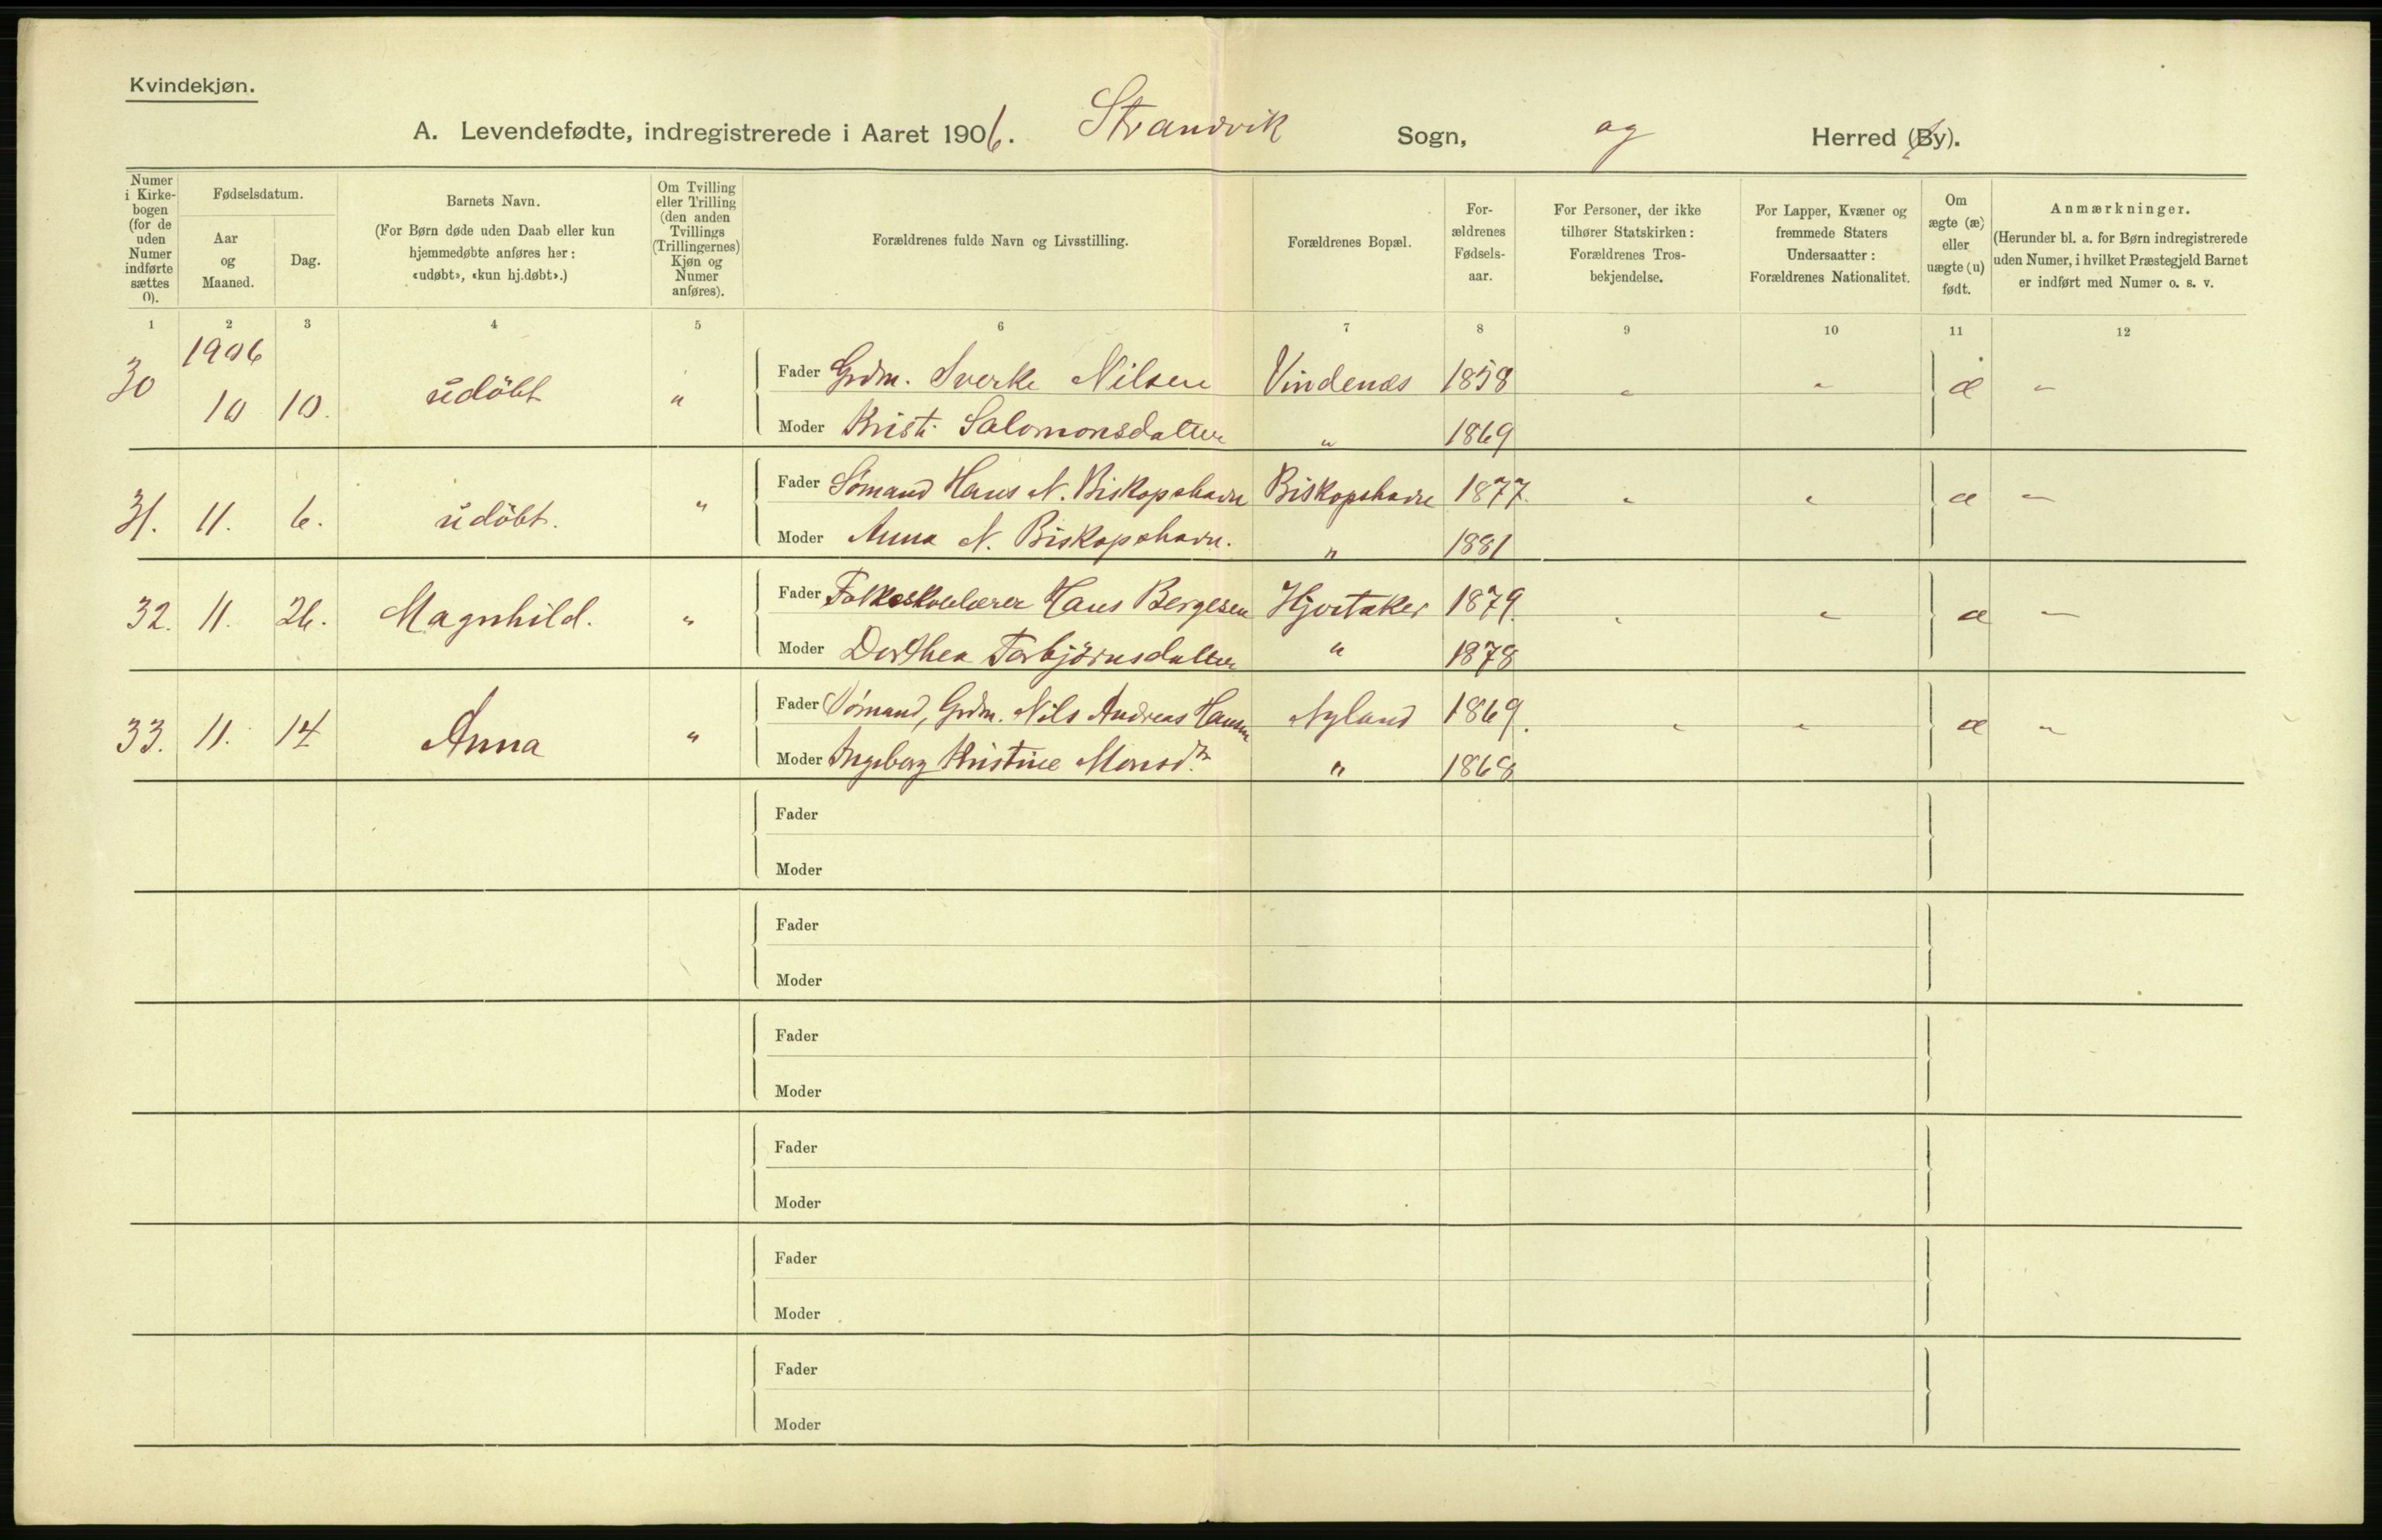 Kvindekjøn.
A. Levendefødte, indregistrerede i Aaret 1906. Strandvik Sogn, og Herred (By).
Numer i Kirke-bogen (for de uden Numer indførte sættes 0).
Fødselsdatum.
Aar og Maaned.
Dag.
Barnets Navn.
(For Børn døde uden Daab eller kun
hjemmedøbte anføres her:
«udøbt», «kun hj.døbt».)
Om Tvilling
eller Trilling
(den anden
Tvillings
(Trillingernes)
Kjøn og
Numer
anføres).
Forældrenes fulde Navn og Livsstilling.
Forældrenes Bopæl.
For-
ældrenes
Fødsels-
aar.
For Personer, der ikke
tilhører Statskirken:
Forældrenes Tros-
bekjendelse.
For Lapper, Kvæner og
fremmede Staters
Undersaatter:
Forældrenes Nationalitet.
Om
ægte (æ)
eller
uægte (u)
født.
Anmærkninger.
(Herunder bl. a. for Børn indregistrerede
uden Numer, i hvilket Præstegjeld Barnet
er indført med Numer o. s. v.
1 2 3 4 5 6 7 8 9 10 11 12
1906
30 10 10. udöbt " Fader Grdm. Sverke Nilsen Vindenæs 1858 " " æ "
Moder Kristi Salomonsdatter " 1869
31. 11. 6. udöbt. " Fader Sømand Hans N. Biskopshavn Biskopshavn 1877. " " æ "
Moder Anna N. Biskopshavn. " 1881
32. 11. 26. Magnhild. " Fader Folkeskolelærer Hans Bergesen Hjortaker 1879. " " æ "
Moder Dorthea Torbjörnsdatter " 1878
33. 11. 14 Anna " Fader Sømand, Grdm. Nils Andreas Hansen Nyland 1869. " " æ "
Moder Ingeborg Kristine Monsdtr. " 1868
Fader
Moder
Fader
Moder
Fader
Moder
Fader
Moder
Fader
Moder
Fader
Moder